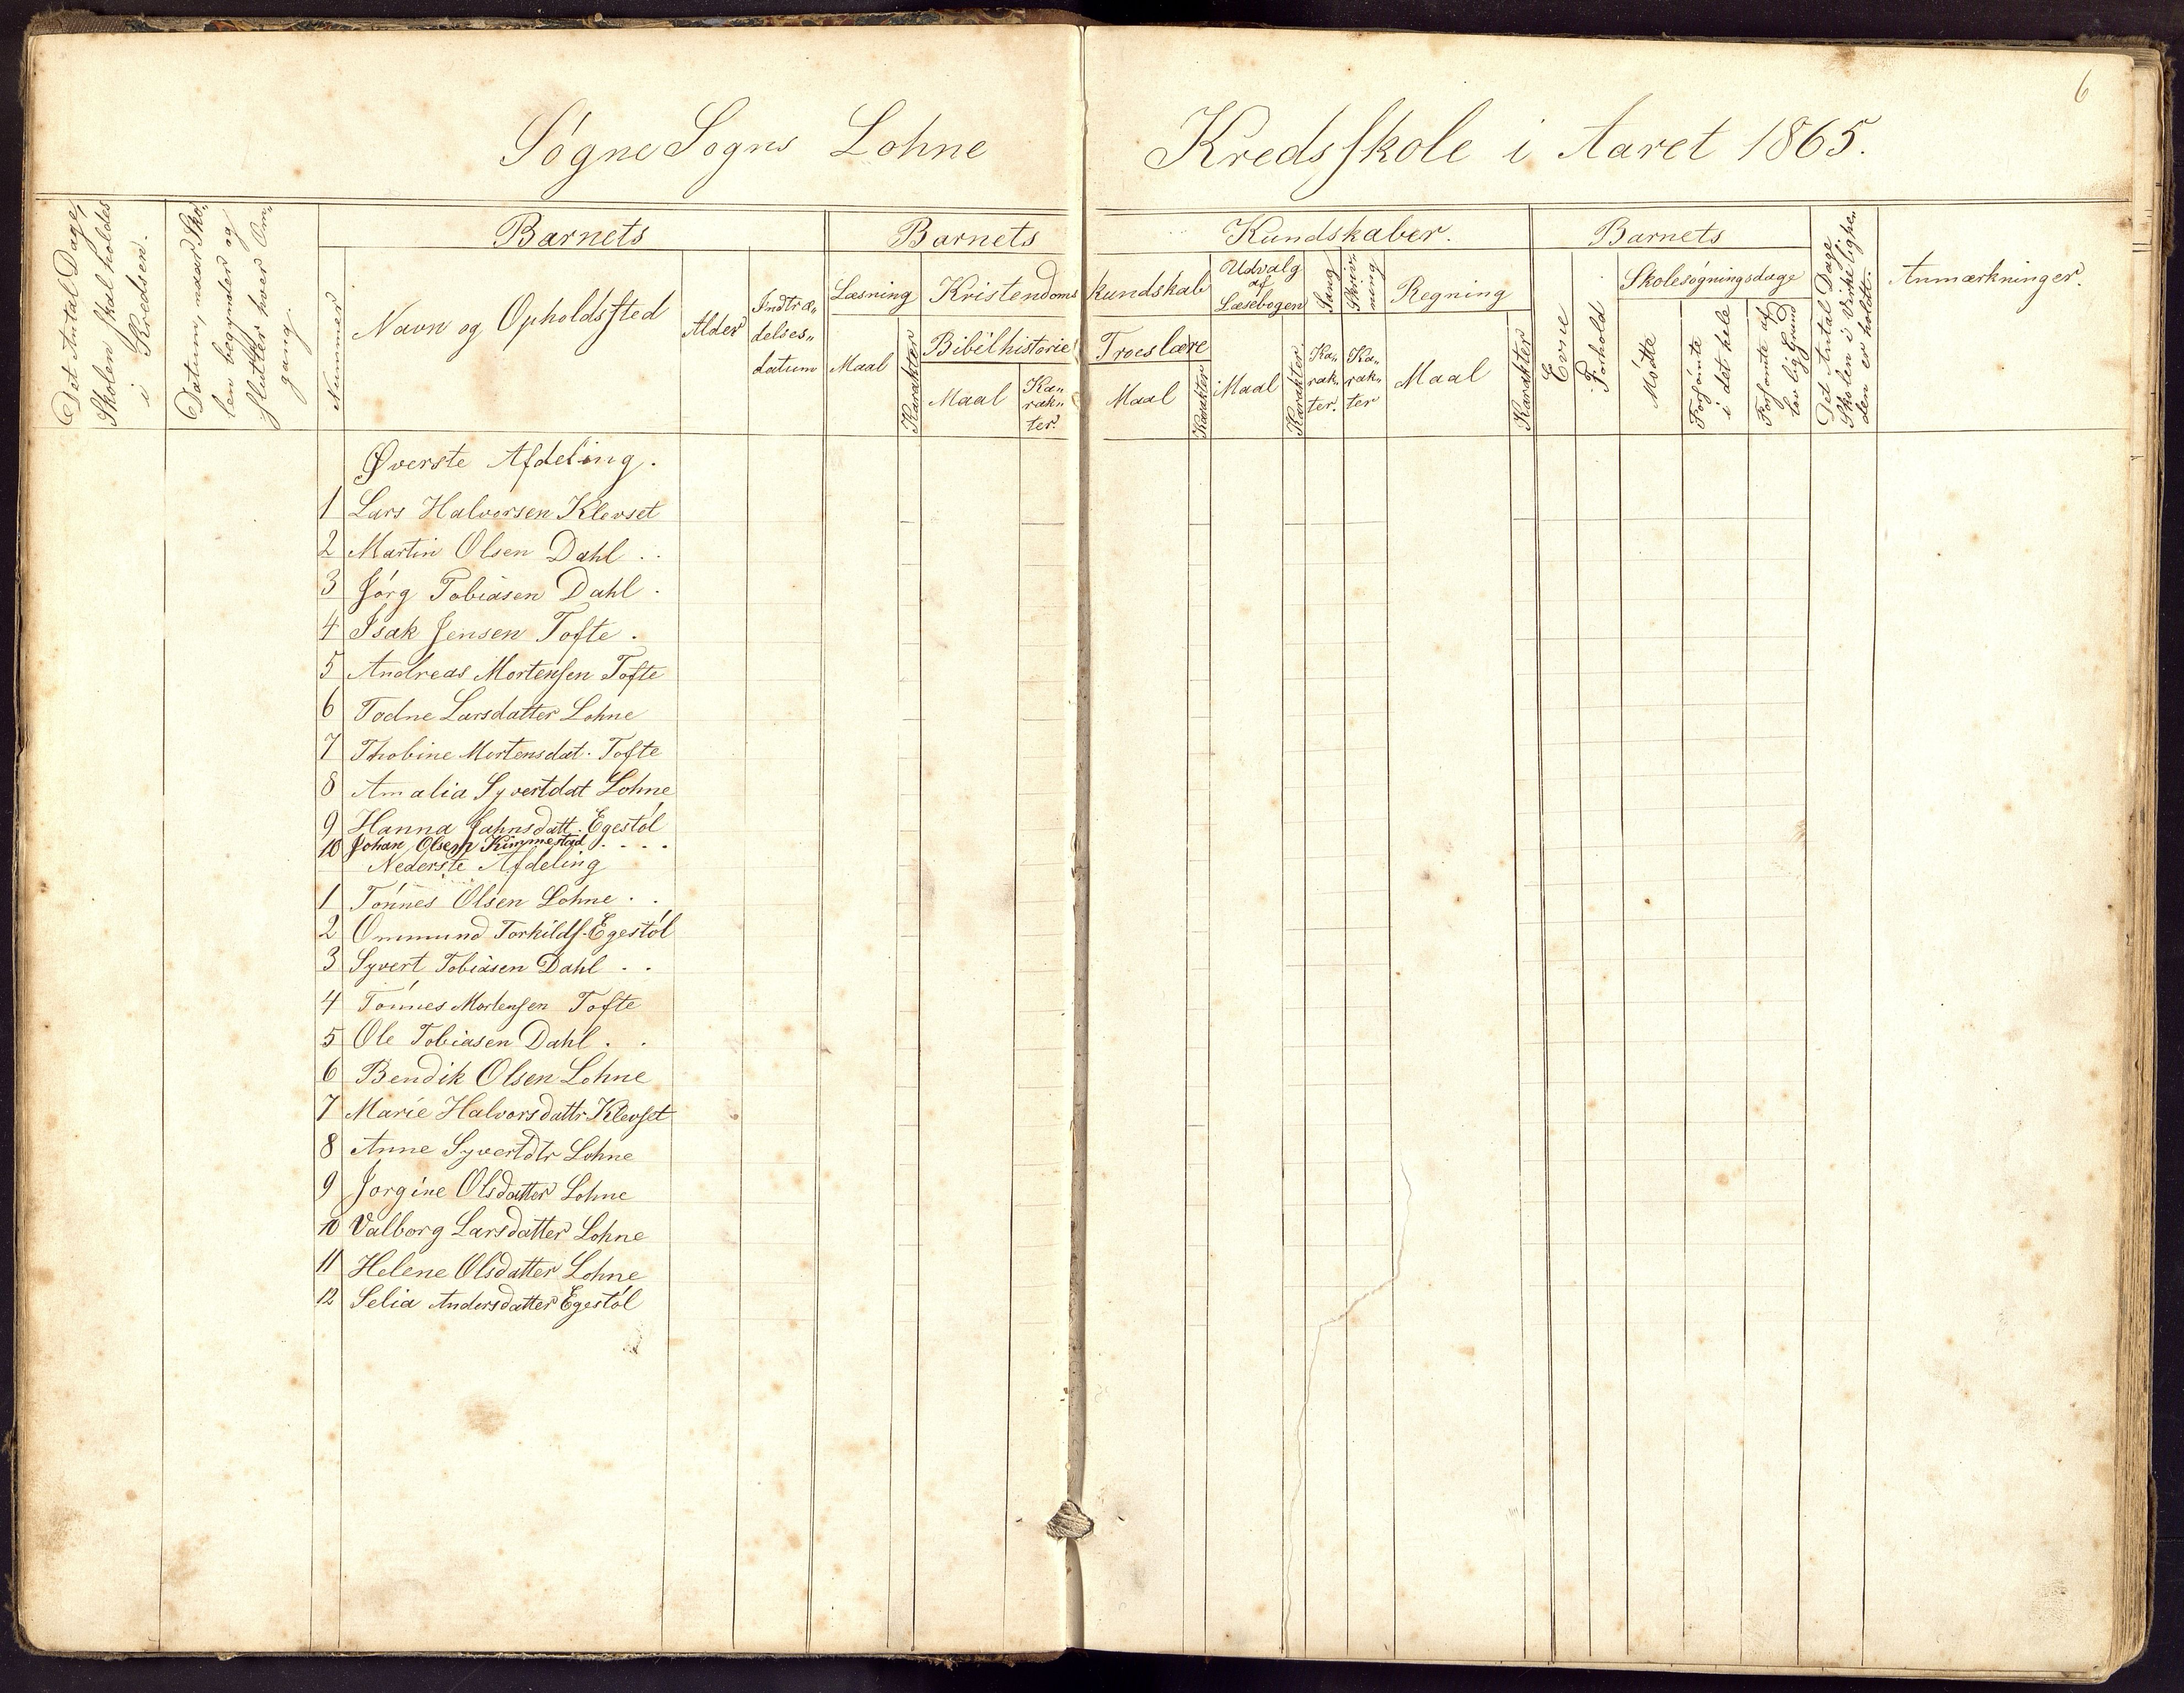 6
Søgne Sogns Lohne Kredsskole i Aaret 1865.
Det Antal Dage,
Skolen skal holdes
i Kredsen.
Datum, naar Sko„
len begynder og
slutter hver Om„
gang.
Barnets
Nummer
Navn og Opholdssted
Alder
Indtræ„
delses„
datum
Barnets Kundskaber.
Læsning
Maal
Karakter
Kristendoms kundskab
Bibelhistorie
Maal
Ka„
rak„
ter.
Troeslære
Maal
Karakter
Udvalg
af
Læsebogen
Maal
Karakter
Sang
Ka„
rak„
ter.
Skriv„
ning
Ka„
rak„
ter
Regning
Maal
Karakter
Barnets
Evne
Forhold
Skolesøgningsdage
Mødte
Forsømte
i det hele
Forsømte af
lovlig Grund
Det Antal Dage
Skolen i Virkelighe„
den er holdt.
Anmærkninger.
Øverste Afdeling.
1 Lars Halvorsen Klevset
2 Martin Olsen Dahl . .
3 Jørg Tobiasen Dahl .
4 Isak Jensen Tofte .
5 Andreas Mortensen Tofte
6 Todne Larsdatter Lohne
7 Thobine Mortensdat. Tofte
8 Amalia Syvertdat Lohne
9 Hanna Jahnsdatt. Egestøl
10 Johan Olsen Kimmestad . . . .
Nederste Afdeling
1 Tønnes Olsen Lohne . .
2 Ommund Torkilds. Egestøl
3 Syvert Tobiasen Dahl . .
4 Tønnes Mortensen Tofte
5 Ole Tobiasen Dahl . .
6 Bendik Olsen Lohne
7 Marie Halvorsdattr Klevset
8 Anne Syvertdtr Lohne
9 Jorgine Olsdatter Lohne
10 Valborg Larsdatter Lohne
11 Helene Olsdatter Lohne
12 Selia Andersdatter Egestøl